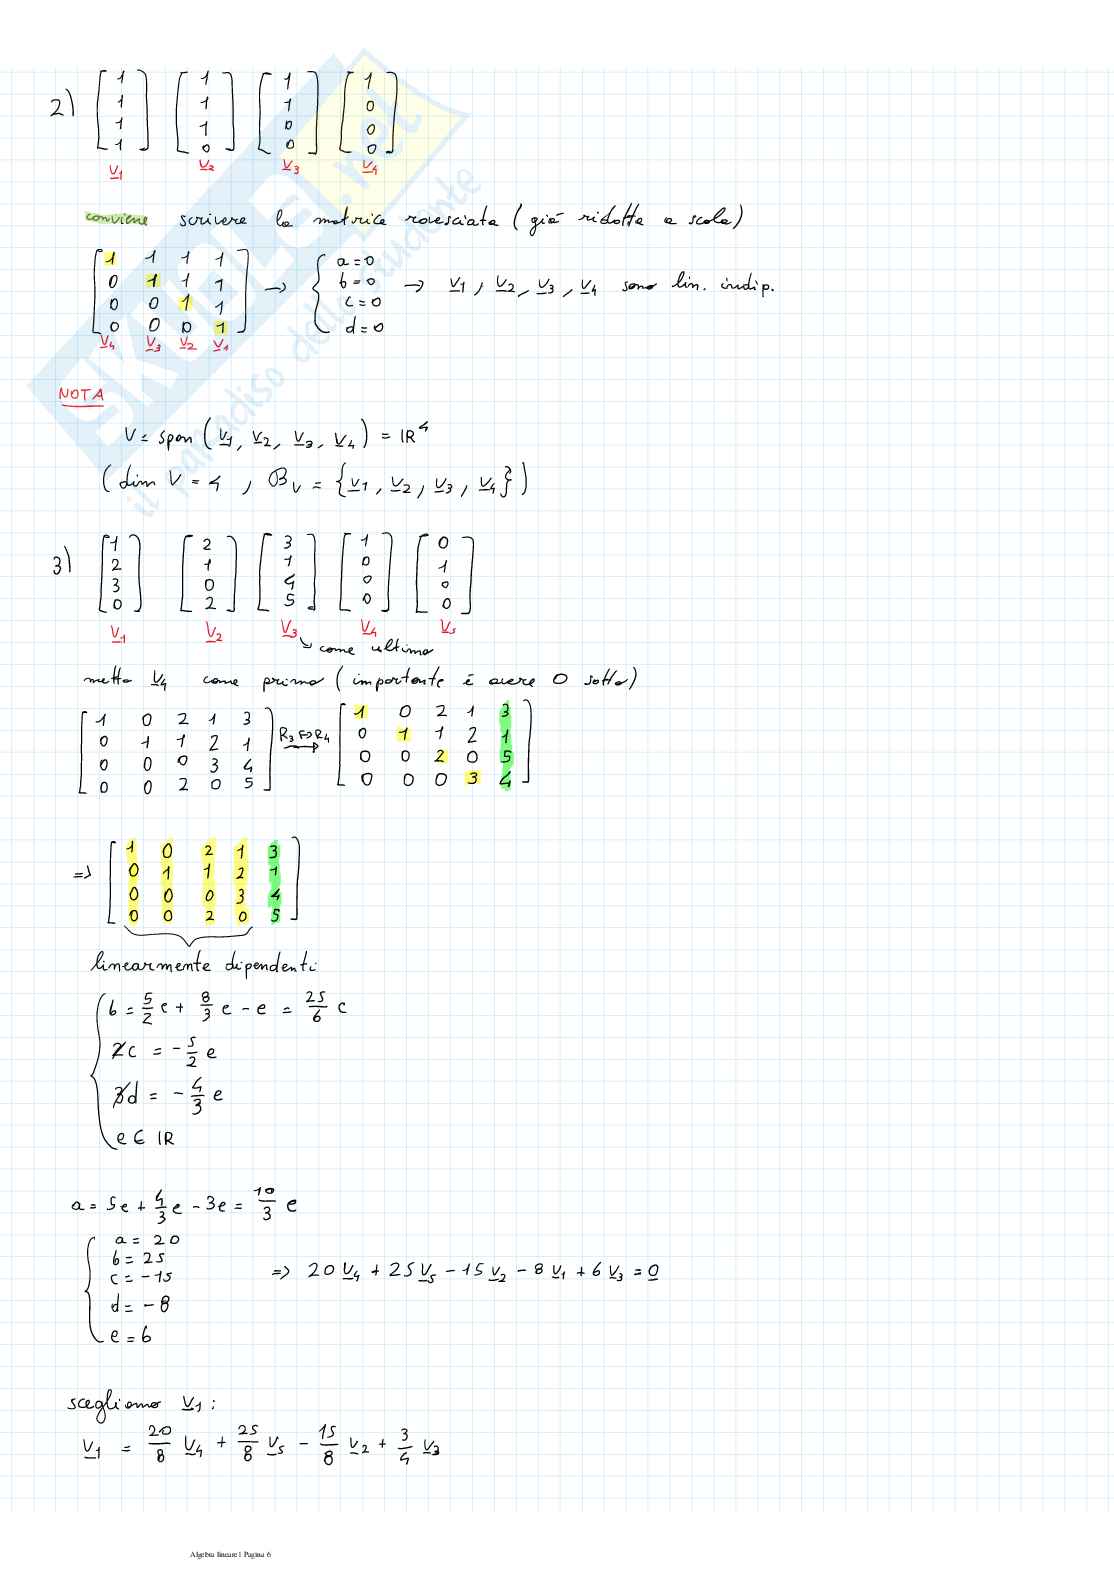 2) [1 1 1 1] [1 1 1 0] [1 1 0 0] [1 0 0 0]
v1 v2 v3 v4
conviene scrivere la matrice rovesciata (già ridotta a scala)
[1 1 1 1
0 1 1 1
0 0 1 1
0 0 0 1] → { a=0 b=0 c=0 d=0 → v1, v2, v3, v4 sono lin. indip.
v4 v3 v2 v1
NOTA
V = span (v1, v2, v3, v4) = IR^4
(dim V = 4, B_V = {v1, v2, v3, v4})
3) [1 2 3 0] [2 1 0 2] [3 1 4 5] [1 0 0 0] [0 1 0 0]
v1 v2 v3 v4 v5
↘ come ultimo
metto v4 come primo (importante è avere 0 sotto)
[1 0 2 1 3
0 1 1 2 1
0 0 0 3 4
0 0 2 0 5]
R3⇔R4 →
[1 0 2 1 3
0 1 1 2 1
0 0 2 0 5
0 0 0 3 4]
=> [1 0 2 1 3
0 1 1 2 1
0 0 0 3 4
0 0 2 0 5]
linearmente dipendenti
{ b = 5/2 e + 8/3 e - e = 25/6 e
2c = -5/2 e
3d = -4/3 e
e ∈ IR
a = 5e + 4/3 e - 3e = 10/3 e
{ a = 20
b = 25
c = -15
d = -8
e = 6
=> 20 v4 + 25 v5 - 15 v2 - 8 v1 + 6 v3 = 0
scegliamo v1 :
v1 = 20/8 v4 + 25/8 v5 - 15/8 v2 + 3/4 v3
SKUOLA.net
il paradiso dello studente
Algebra lineare1 Pagina 6